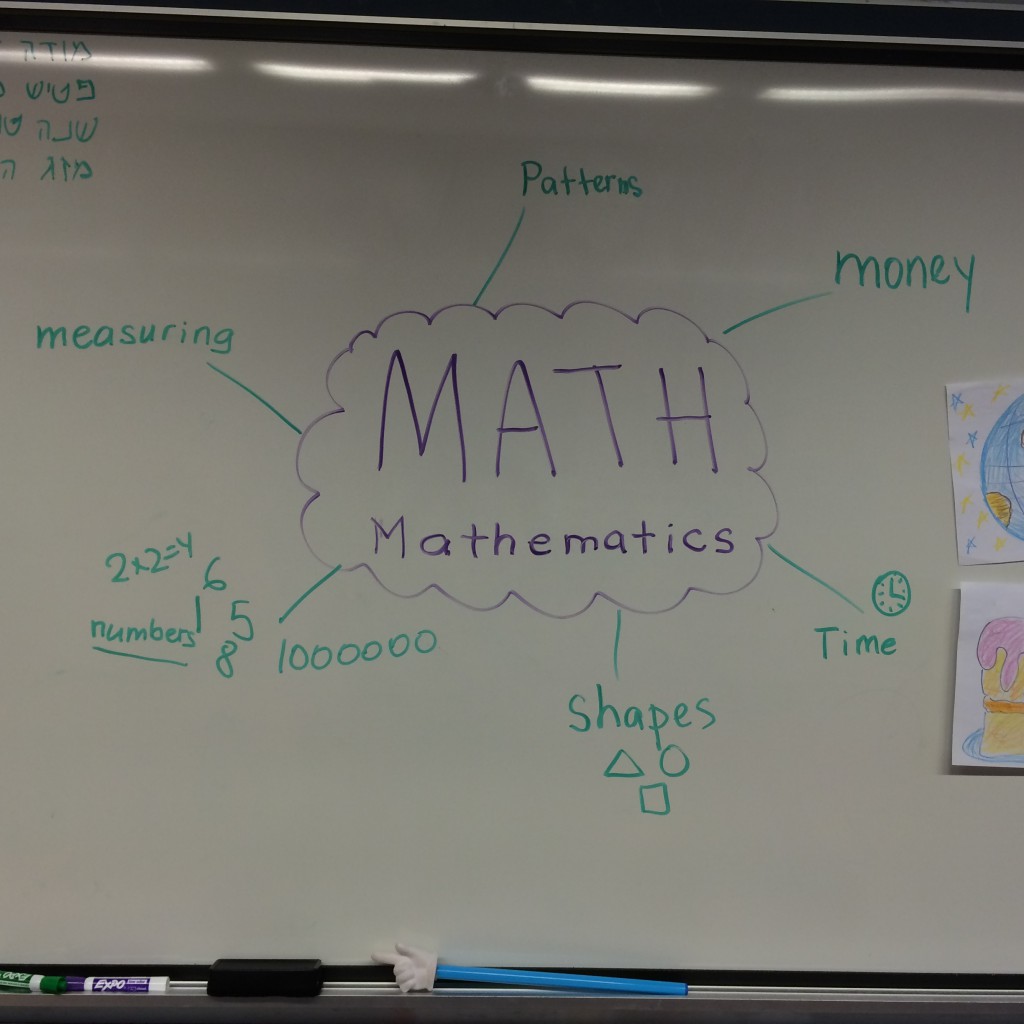 מודה
פטיש
שנה
מזג
Patterns
money
measuring
MATH
Mathematics
2×2=4
6
numbers 1 5
8 1000000
Time
Shapes
EXPO
EXPO